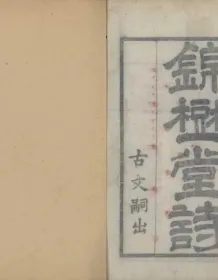 錦樹堂詩
古文嗣出